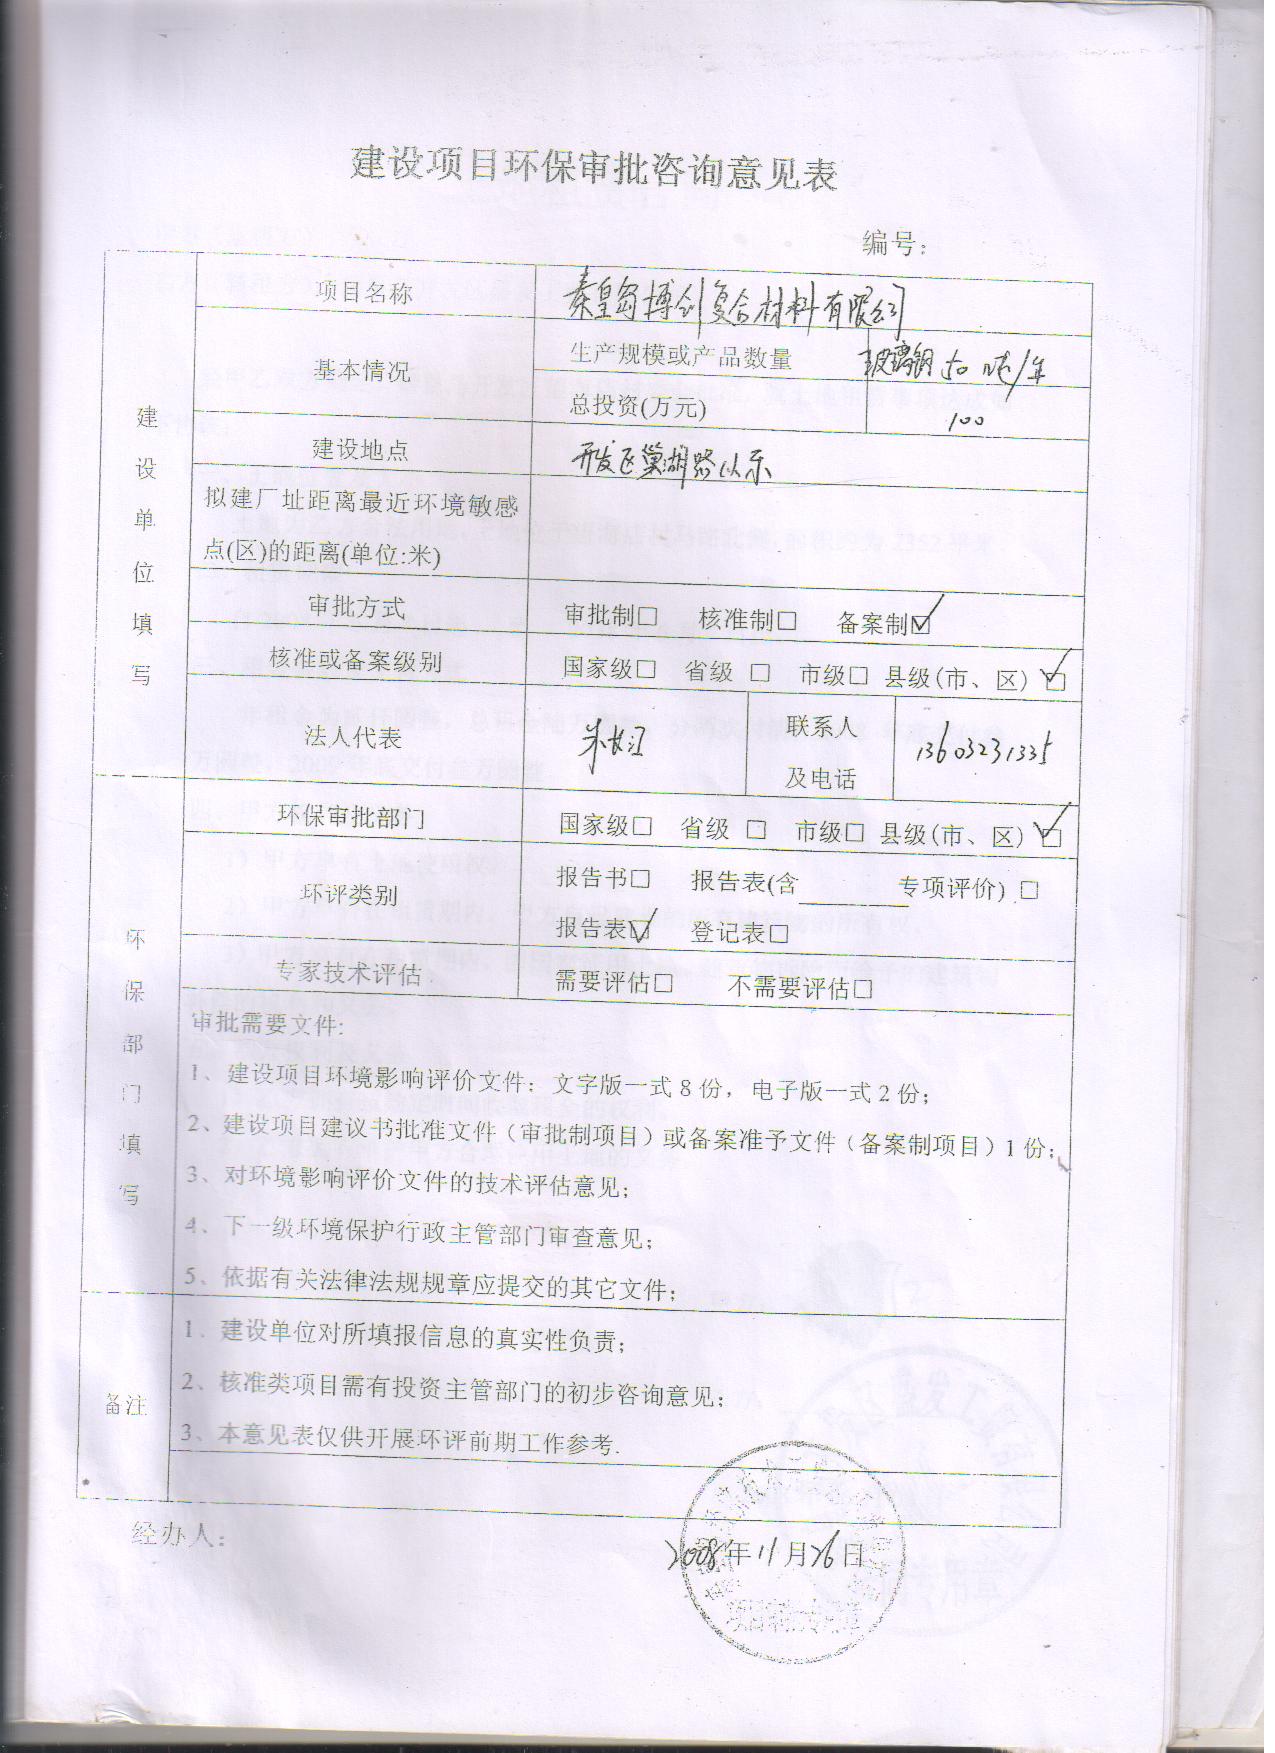 建设项目环保审批咨询意见表
编号:
建设单位填写
项目名称 秦皇岛博创复合材料有限公司
基本情况 生产规模或产品数量 玻璃钢50吨/年
总投资(万元) 100
建设地点 开发区巢湖路以东
拟建厂址距离最近环境敏感
点(区)的距离(单位:米)
审批方式 审批制□ 核准制□ 备案制☑
核准或备案级别 国家级□ 省级 □ 市级□ 县级(市、区) ☑
法人代表 联系人 13603231335
及电话
环保部门填写
环保审批部门 国家级□ 省级 □ 市级□ 县级(市、区) ☑
环评类别 报告书□ 报告表(含______专项评价) □
报告表☑ 登记表□
专家技术评估 需要评估□ 不需要评估□
审批需要文件:
1、建设项目环境影响评价文件: 文字版一式8份, 电子版一式2份;
2、建设项目建议书批准文件(审批制项目)或备案准予文件(备案制项目)1份;
3、对环境影响评价文件的技术评估意见;
4、下一级环境保护行政主管部门审查意见;
5、依据有关法律法规规章应提交的其它文件;
备注
1、建设单位对所填报信息的真实性负责;
2、核准类项目需有投资主管部门的初步咨询意见;
3、本意见表仅供开展环评前期工作参考.
经办人:
2008年11月26日